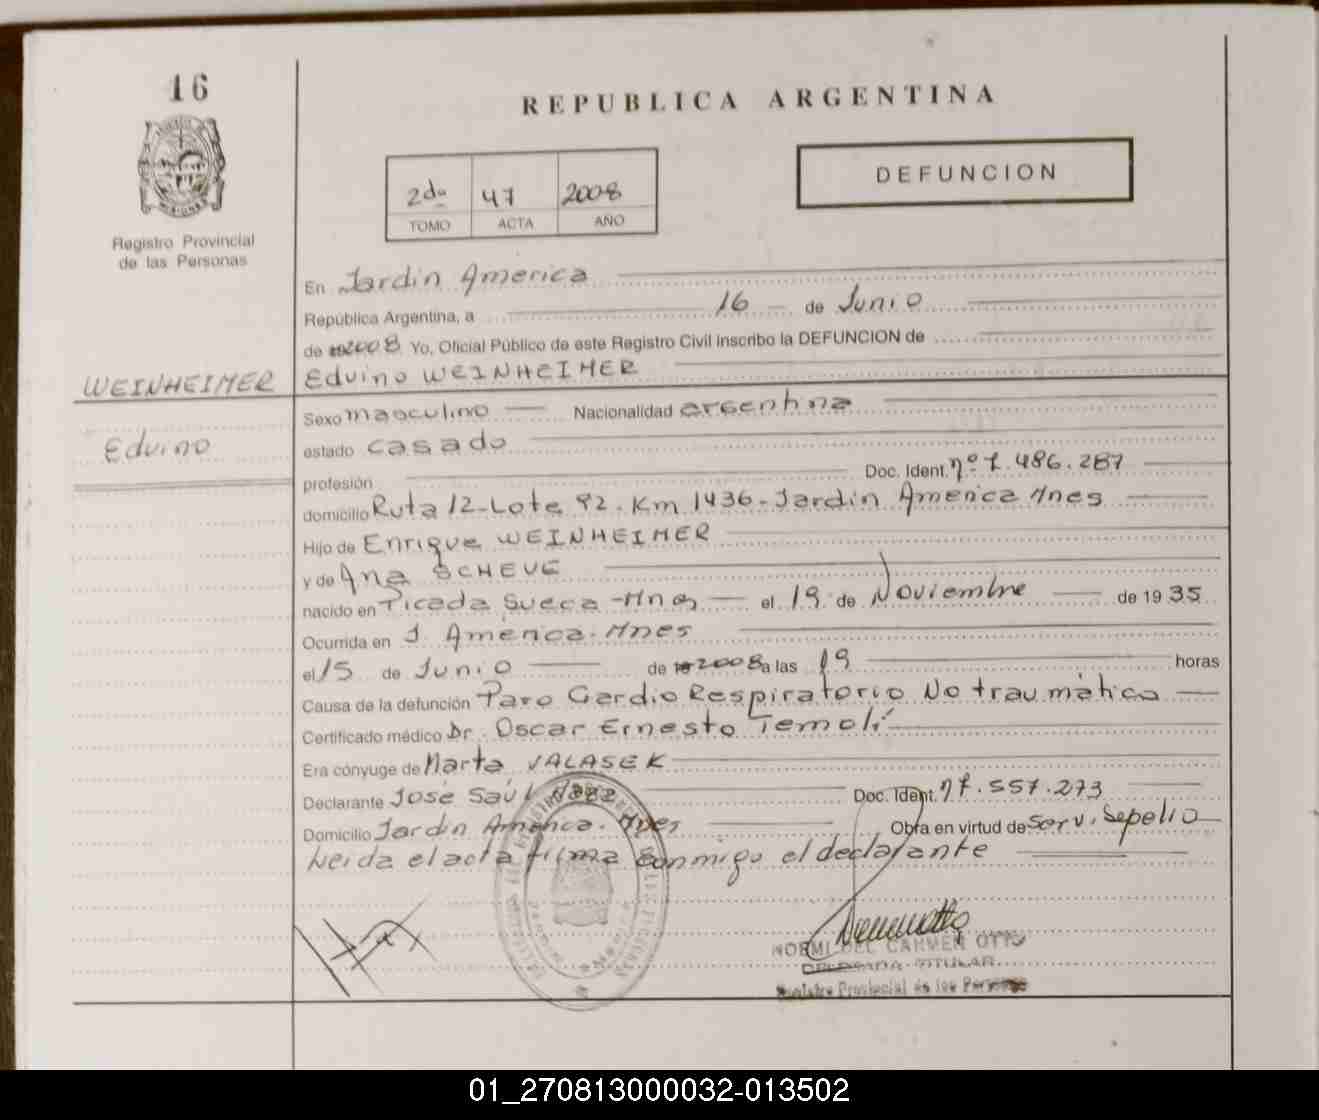 16
REPUBLICA ARGENTINA
DEFUNCION
2do 47 2008
TOMO ACTA AÑO
Registro Provincial
de las Personas
En Jardin America
República Argentina, a 16 de Junio
de 2008 Yo, Oficial Público de este Registro Civil inscribo la DEFUNCION de
WEINHEIMER Edvino WEINHEIMER
Edvino
Sexo masculino Nacionalidad argentina
estado casado
profesión Doc. Ident. nº 7.486.287
domicilio Ruta 12-Lote 92. Km 1436-Jardin America Mnes
Hijo de Enrique WEINHEIMER
y de Ana SCHEVE
nacido en Picada Sueca-Mnes el 19 de Noviembre de 1935
Ocurrida en J. America. Mnes
el 15 de Junio de 2008 a las 19 horas
Causa de la defunción Paro Cardio Respiratorio No traumático
Certificado médico Dr. Oscar Ernesto Temoli
Era cónyuge de Marta VALASEK
Declarante José Saúl Doc. Ident. 7.557.273
Domicilio Jardin America. Mnes Obra en virtud de Serv. Sepelio
Leida el acta firma conmigo el declarante
NORMI DEL CARMEN OTTO
DELEGADA TITULAR
Registro Provincial de las Personas
01_270813000032-013502